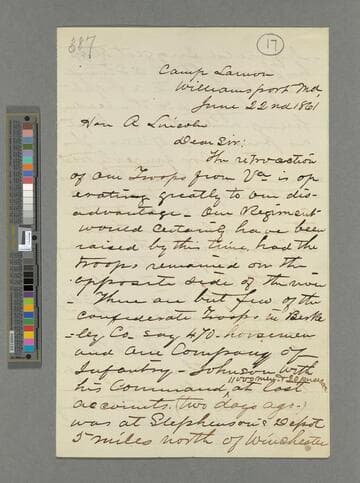 887
17
Camp Lamon
Williamsport Md,
June 22nd 1861
Hon A Lincoln
Dear Sir:
The retroaction
of our Troops from Va is op
erating greatly to our dis-
advantage - Our Regiment
would certainly have been
raised by this time, had the
troops remained on the
opposite side of the riv
- There are but few of the
confederate Troops in Berke
=ley Co - say 470 - horsemen
and one Company of
Infantry - Johnson with
his Command, at last
accounts, (two days ago -)
was at Stephenson's Depot
5 miles north of Winchester